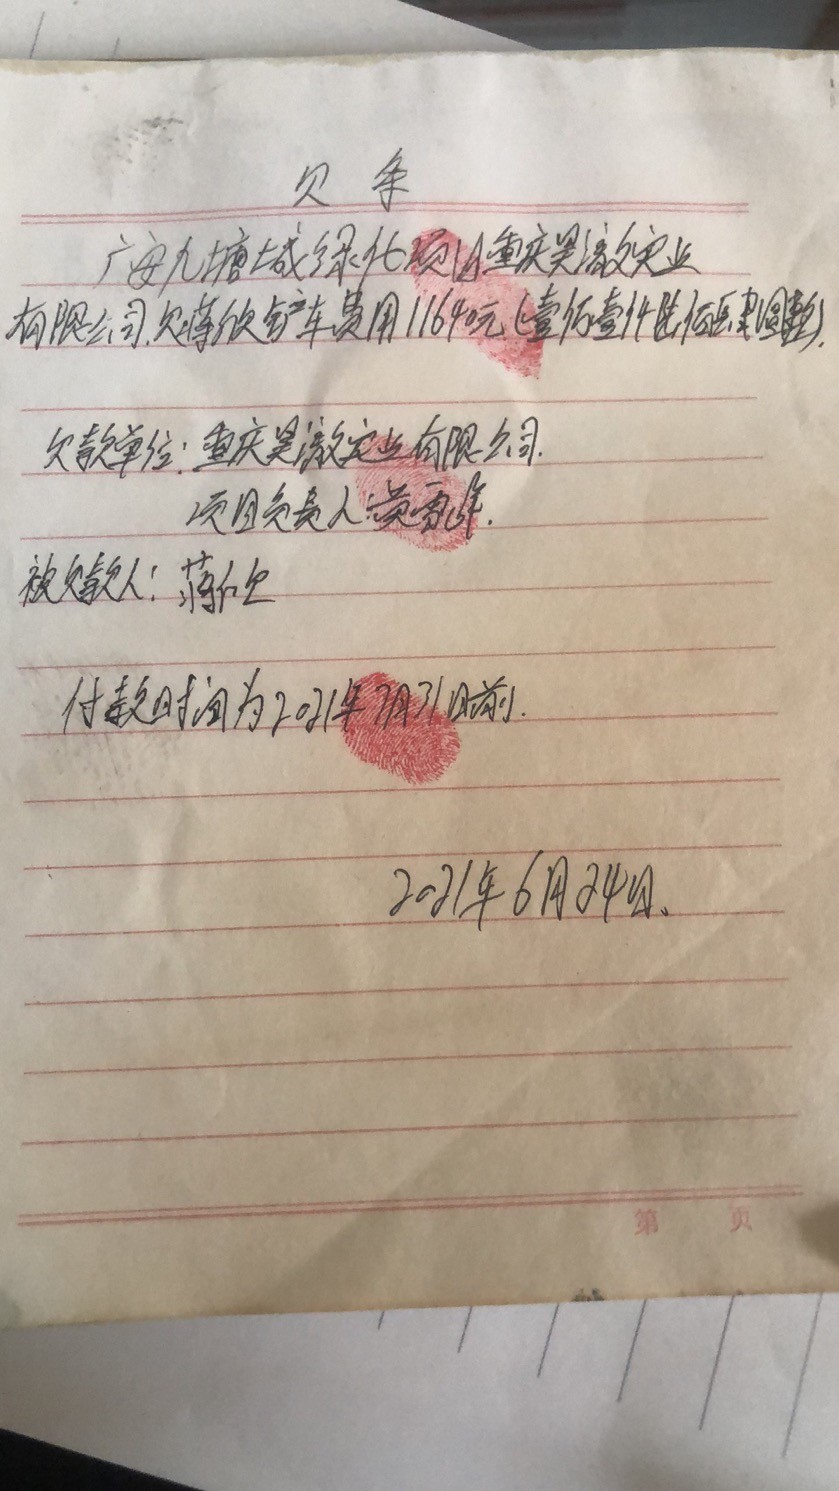 欠条
广安九塘城绿化项目重庆昊澂实业
有限公司.欠蒋欣铲车费用11640元(壹万壹仟陆佰肆圆整).
欠款单位:重庆昊澂实业有限公司.
项目负责人:黄
被欠款人:蒋欣
付款时间为2021年7月31日前.
2021年6月24日.
第 页